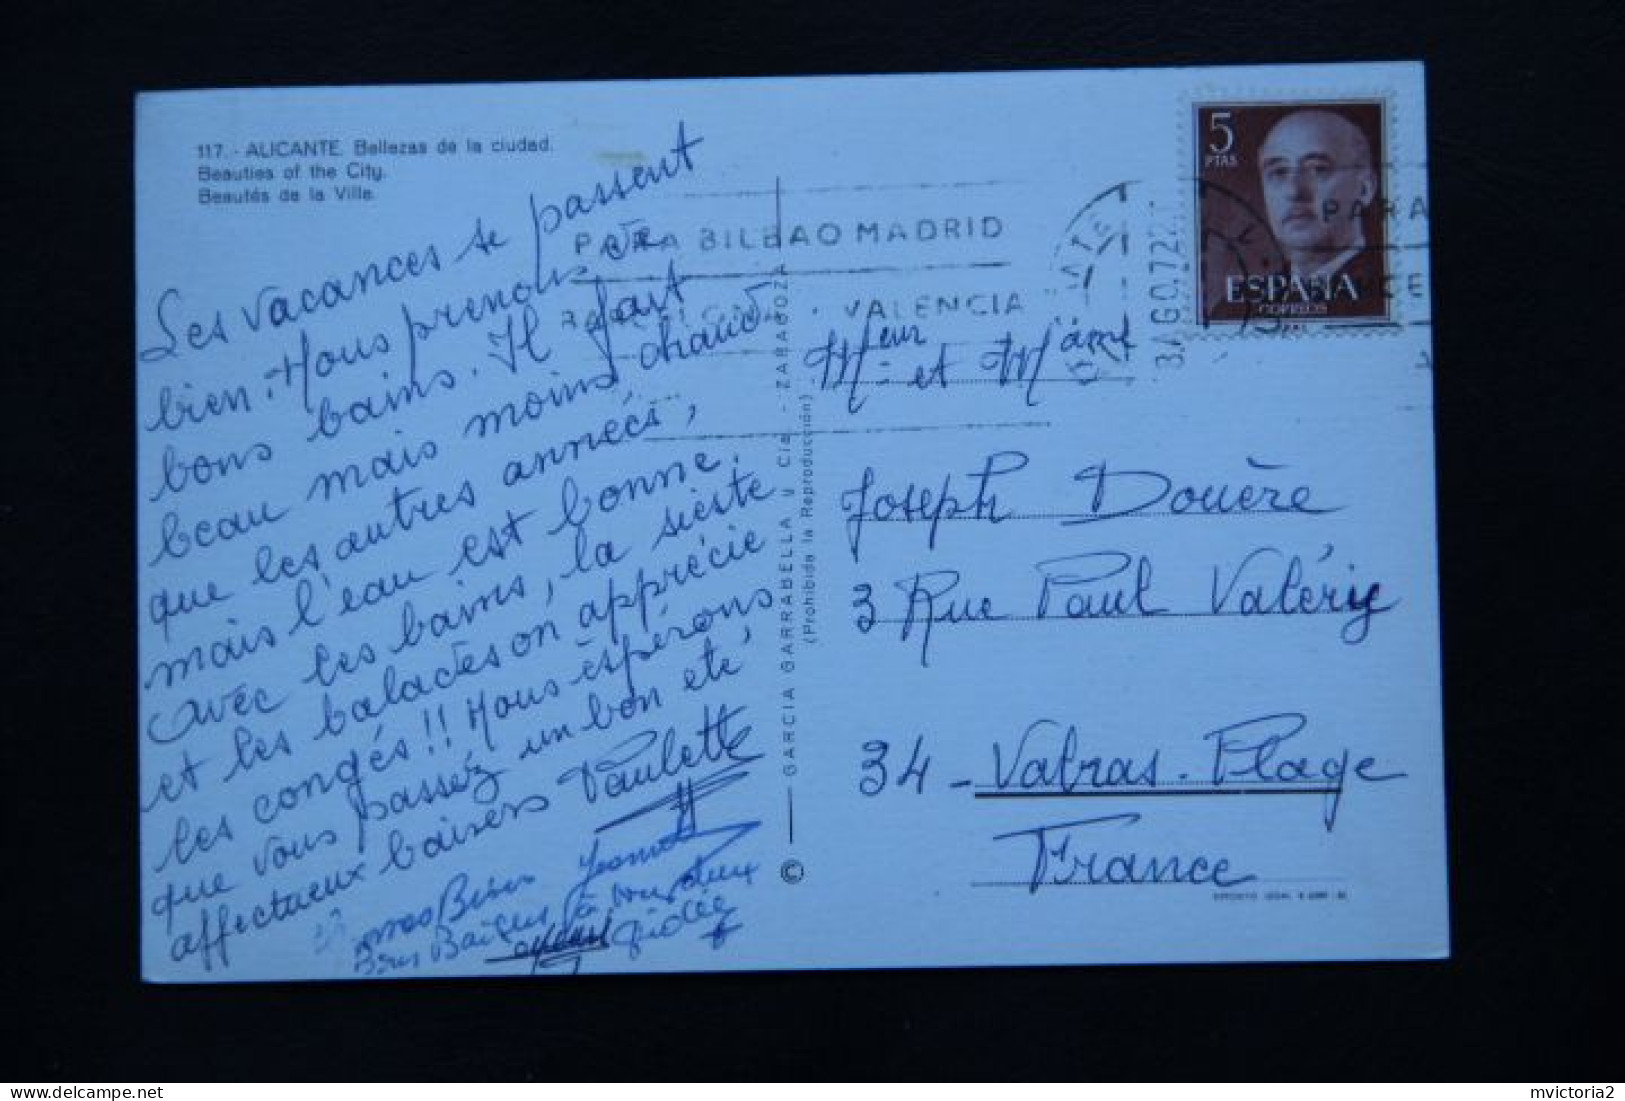 117.- ALICANTE. Bellezas de la ciudad.
Beauties of the City.
Beautés de la Ville.
Les vacances se passent
bien. Nous prenons de
bons bains. Il fait
beau mais moins chaud
que les autres années,
mais l'eau est bonne.
avec les bains, la sieste
et les balades on apprécie
les congés!! Nous espérons
que vous passez un bon été
affectueux baisers Paulette
gros Bises
Bons Baisers à tous deux
GARCIA GARRABELLA y Cia. - ZARAGOZA
(Prohibida la Reproducción)
©
PARA BILBAO MADRID
VALENCIA
PARA
5
PTAS
ESPAÑA
CORREOS
Meur et Madme
Joseph Douère
3 Rue Paul Valéry
34 - Valras-Plage
France
DEPOSITO LEGAL
delcampe.net
mvictoria2